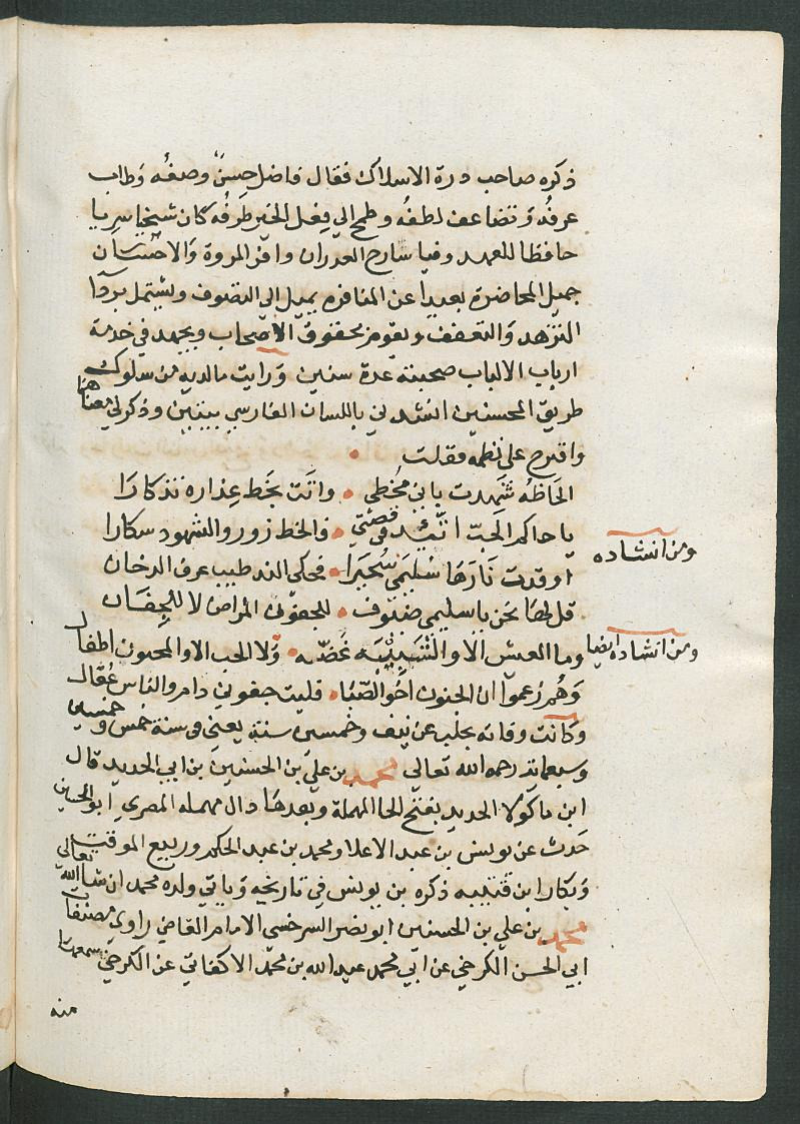 ذكره صاحب درة الاسلاك فقال فاضل حسن وصفه وطاب
عرفه وتضاعف لطفه وطمح الي فعل الخير طرفه كان شيخا سريا
حافظا للعهد وفيا سارح الغدران وافر المروة والاحسان
جميل المحاضرة بعيدا عن المنافرة يميل الى التصوف ويشتمل بردا
التزهد والتعفف ويقوم بحقوق الاصحاب ويجهد في خدمة
ارباب الالباب صحبته عدة سنين ورايت مالديه من سلوك
طريق المحسنين انشدني باللسان الفارسي بيتين وذكر لي معناهما
واقترح علي نظمه فقلت
الحاظه شهدت باني مخطي وانت بخط عذاره تذكارا
يا حاكم الحب اتئد في قصتي فالخط زور والشهود سكارا
ومن انشاده
اوقدت نارها سليمى سحيرا فحكى الند طيب عرف الدخان
قل لها نحن يا سليمي ضيوف للجفون المراض لا للجفان
ومن انشاده ايضا
وما العيش الا والشبيبة غضة ولا الحب الا والمحبون اطفال
وهم زعموا ان الجنون اخو الصبا فليت جنوني دام والناس عقال
وكانت وفاته بحلب عن نيف وخمسين سنة يعني في سنة خمس وخمسين
وسبعماية رحمه الله تعالي محمد بن علي بن الحسين بن ابي الحديد قال
ابن ماكولا الحديد بفتح الحا المهملة وبعدها دال مهملة المصري ابو الحسين
حدث عن يونس بن عبد الاعلا ومحمد بن عبد الحكم وربيع الموقت
وبكار ابن قتيبه ذكره بن يونس في تاريخه وياتي ولده محمد ان شا الله تعالى
محمد بن علي بن الحسين ابو نصر السرخسي الامام القاضي راوي مصنفات
ابي الحسن الكرخي عن ابي محمد عبد الله بن محمد الاكفاني عن الكرخي سمعها
منه